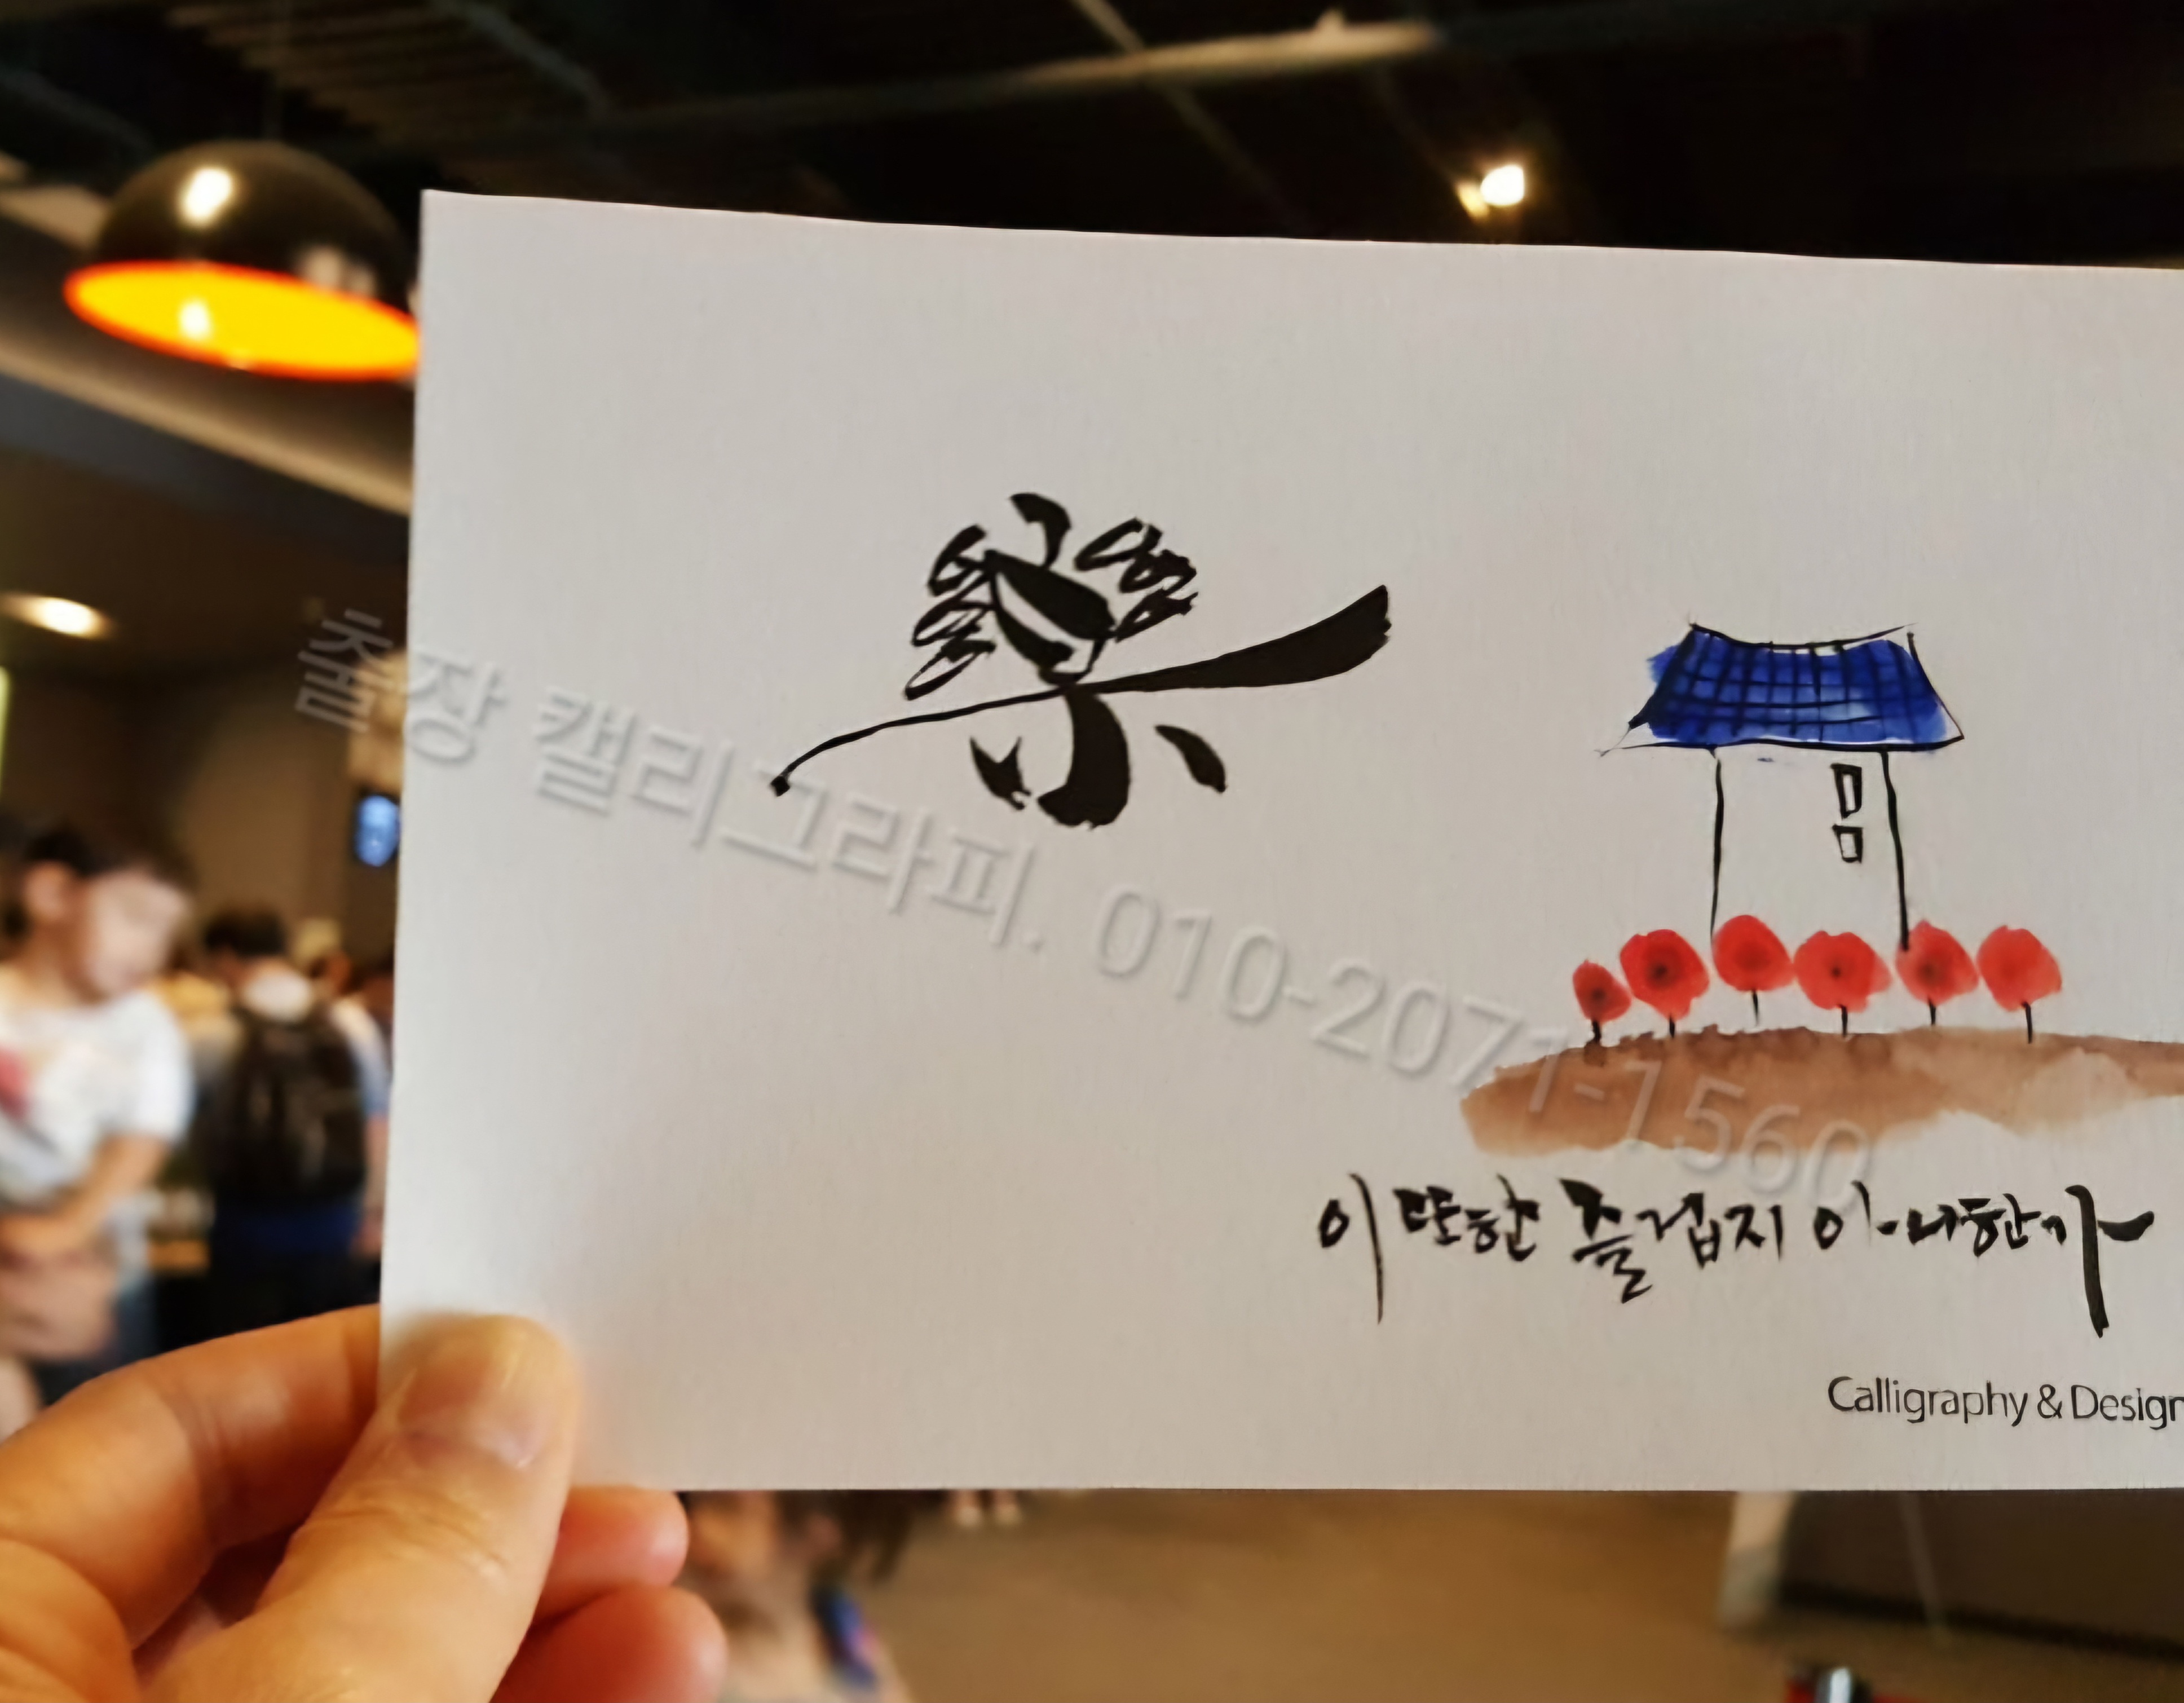 樂
출장 캘리그라피. 010-2071-1560
이 또한 즐겁지 아니한가
Calligraphy & Design